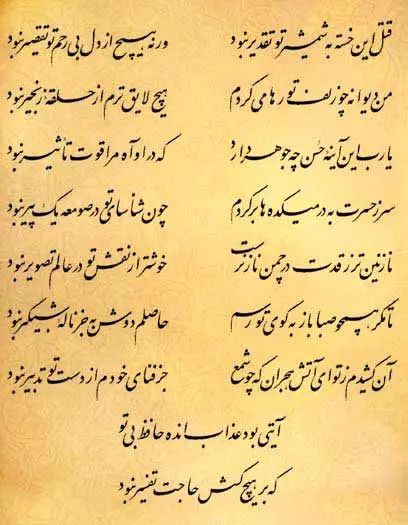 قتل این خسته به شمشیر تو تقدیر نبود ور نه هیچ از دل بی رحم تو تقصیر نبود
من دیوانه چو زلف تو رها می کردم هیچ لایق ترم از حلقۀ زنجیر نبود
یارب این آینۀ حسن چه جوهر دارد که در او آه مرا قوت تأثیر نبود
سر ز حسرت به در میکده ها برکردم چون شناسای تو در صومعه یک پیر نبود
نازنین تر ز قدت در چمن ناز نرست خوشتر از نقش تو در عالم تصویر نبود
تا مگر همچو صبا باز به کوی تو رسم حاصلم دوش به جز نالۀ شبگیر نبود
آن کشیدم ز تو ای آتش هجران که چو شمع جز فنای خودم از دست تو تدبیر نبود
آیتی بود عذاب انده حافظ بی تو
که بر هیچ کسش حاجت تفسیر نبود